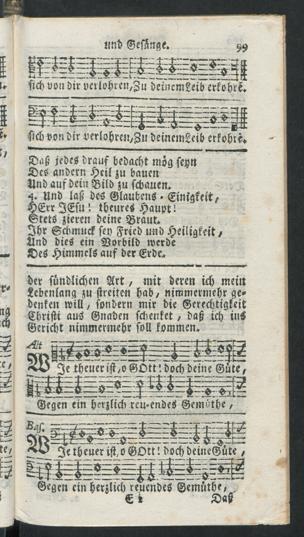 und Gesänge. 99
sich von dir verlohren, Zu deinem Leib erkohrē.
sich von dir verlohren, Zu deinem Leib erkohrē.
Daß jedes drauf bedacht mög seyn
Des andern Heil zu bauen
Und auf dein Bild zu schauen.
4. Und laß des Glaubens-Einigkeit,
HErr JEsu! theures Haupt!
Stets zieren deine Braut.
Ihr Schmuck sey Fried und Heiligkeit,
Und dies ein Vorbild werde
Des Himmels auf der Erde.
der sündlichen Art, mit deren ich mein
Lebenlang zu streiten hab, nimmermehr ge-
denken will, sondern mit die Gerechtigkeit
Christi aus Gnaden schenket, daß ich ins
Gericht nimmermehr soll kommen.
Alt
Wje theuer ist, o GOtt! doch deine Güte,
Gegen ein herzlich reu-endes Gemüthe,
Baß.
Wje theuer ist, o GOtt! doch deine Güte,
Gegen ein herzlich reuendes Gemüthe,
E 2 Daß